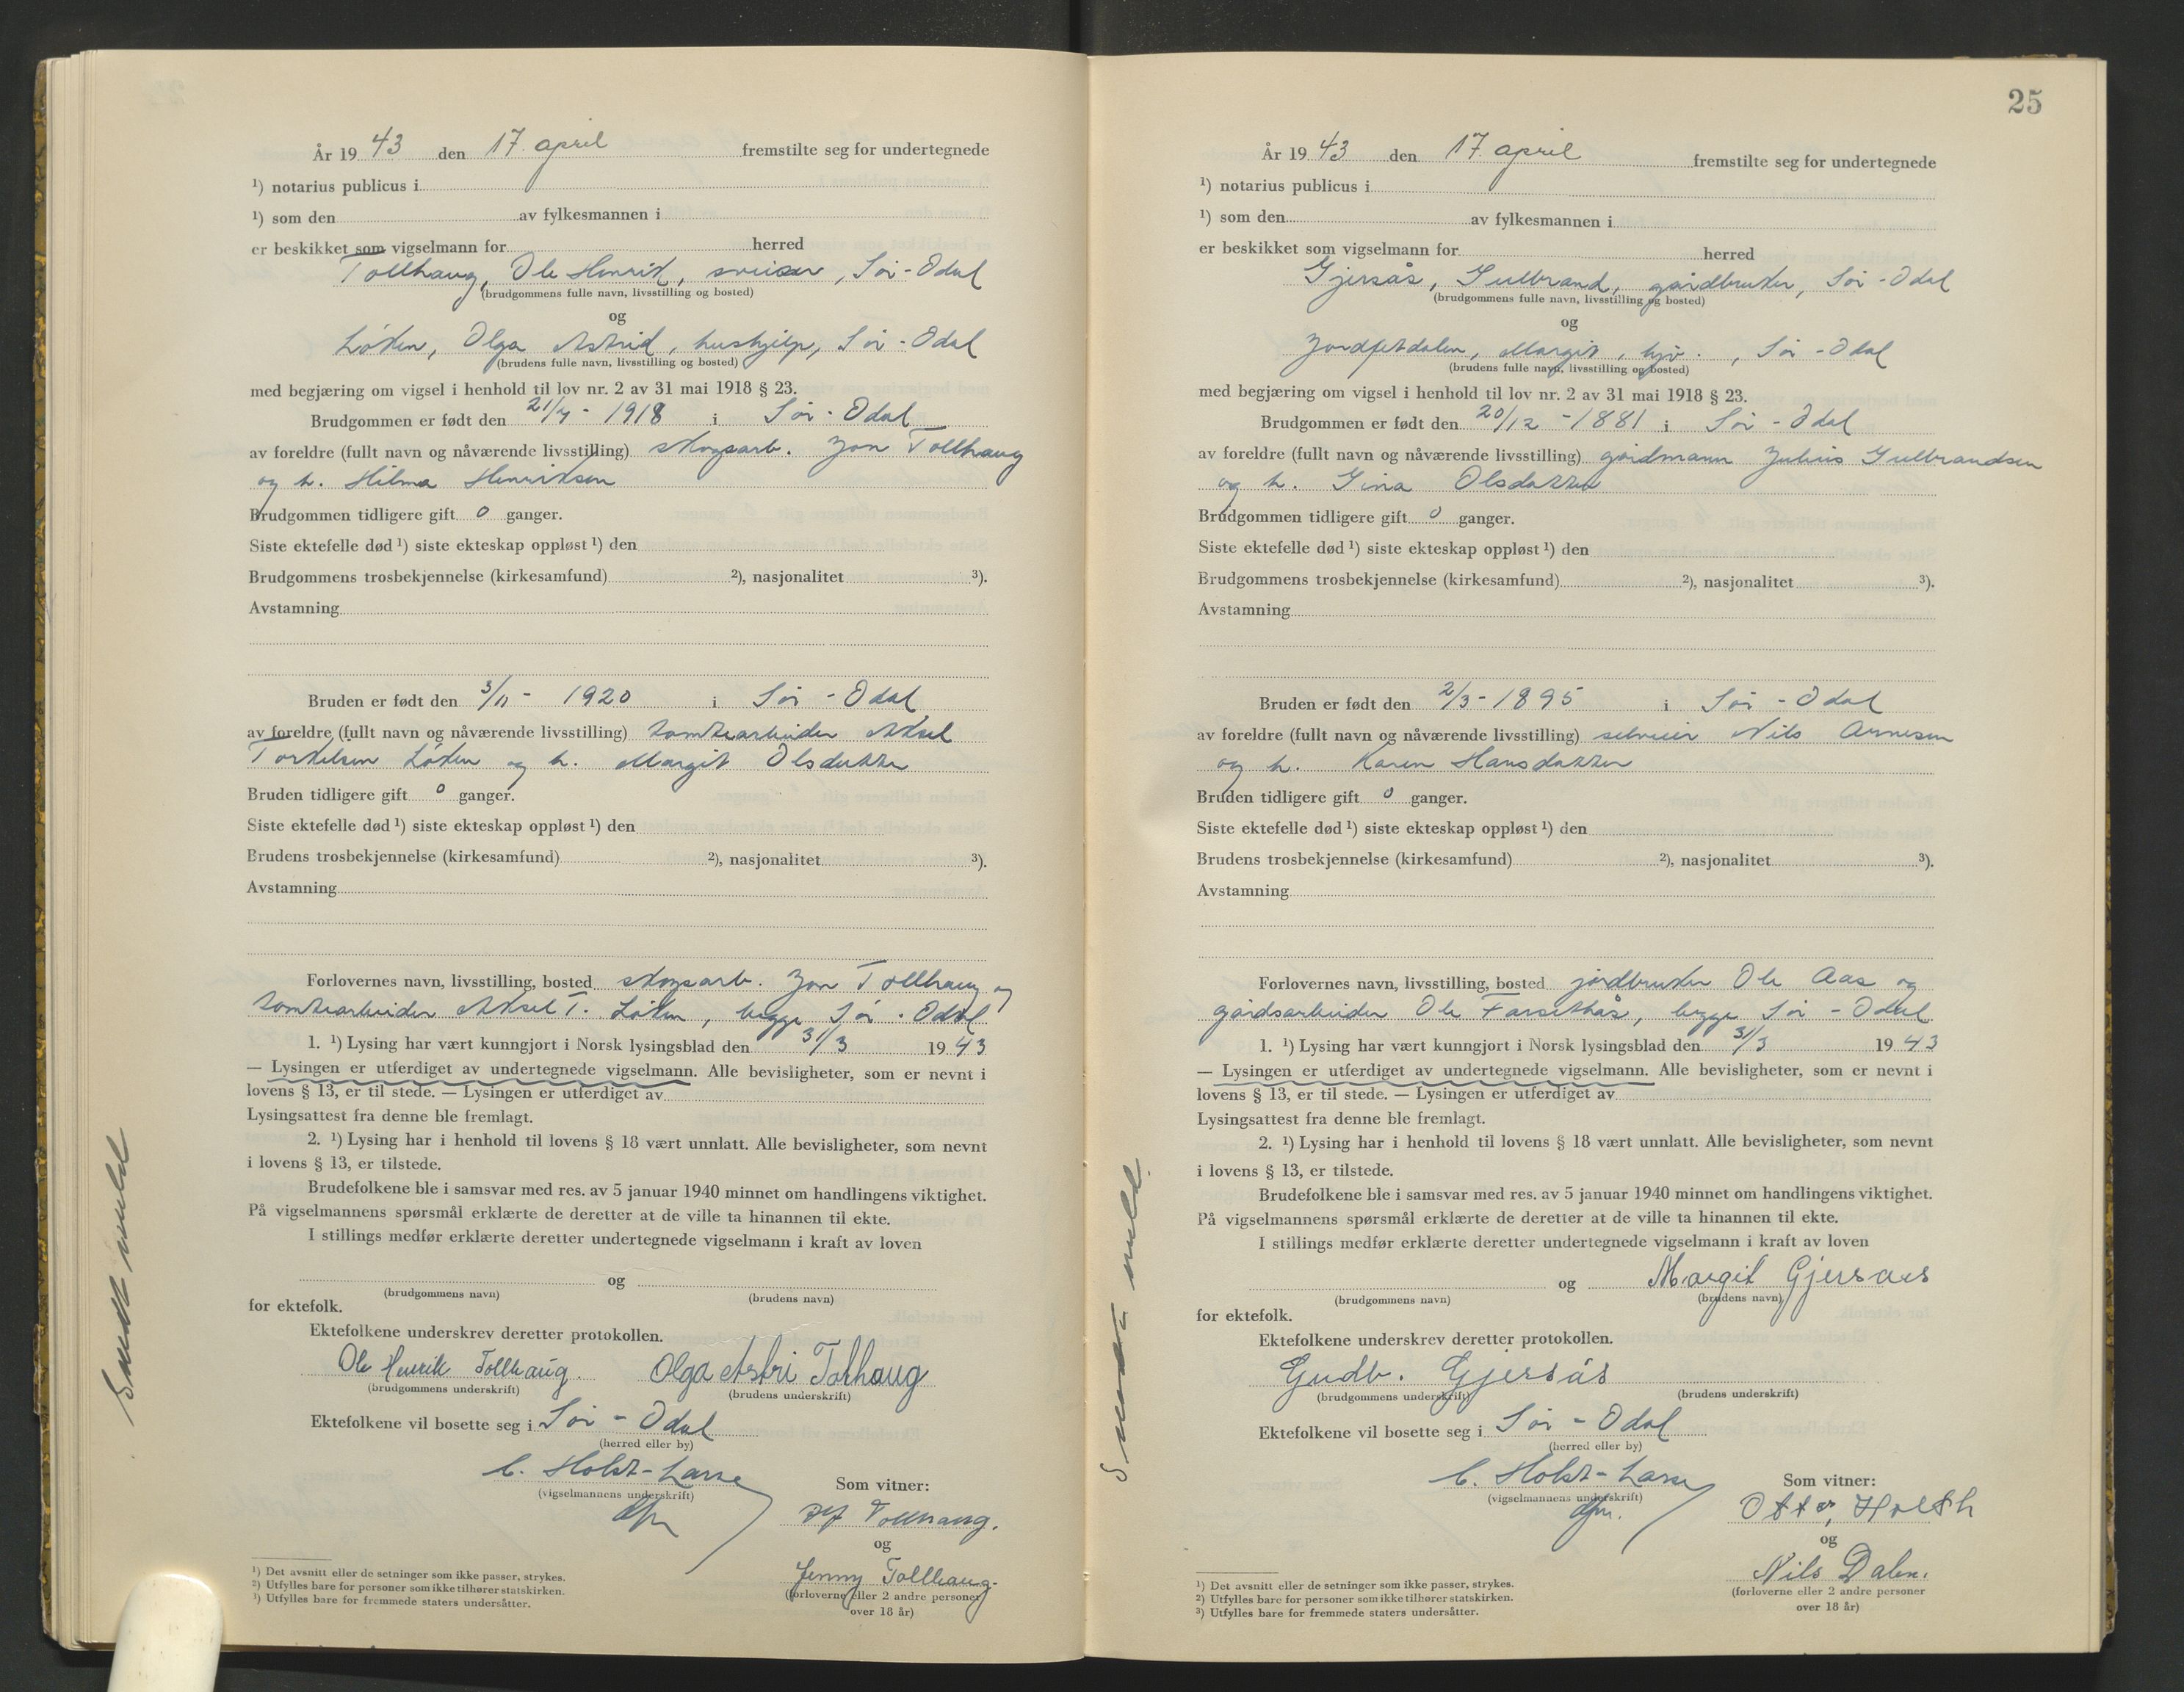 År 19 43 den 17. april fremstilte seg for undertegnede
¹) notarius publicus i
¹) som den av fylkesmannen i
er beskikket som vigselmann for herred
Tollhaug, Ole Henrik, sveiser, Sør-Odal
(brudgommens fulle navn, livsstilling og bosted)
og
Løken, Olga Astrid, hushjelp, Sør-Odal
(brudens fulle navn, livsstilling og bosted)
med begjæring om vigsel i henhold til lov nr. 2 av 31 mai 1918 § 23.
Brudgommen er født den 21/7 - 1918 i Sør-Odal
av foreldre (fullt navn og nåværende livsstilling) skogsarb. Jon Tollhaug
og h. Hilma Henriksen
Brudgommen tidligere gift 0 ganger.
Siste ektefelle død ¹) siste ekteskap oppløst ¹) den
Brudgommens trosbekjennelse (kirkesamfund) ²), nasjonalitet ³).
Avstamning
Bruden er født den 3/11 - 1920 i Sør-Odal
av foreldre (fullt navn og nåværende livsstilling) tomtearbeider Aksel
Torkelsen Løken og h. Margit Olsdatter
Bruden tidligere gift 0 ganger.
Siste ektefelle død ¹) siste ekteskap oppløst ¹) den
Brudens trosbekjennelse (kirkesamfund) ²), nasjonalitet ³).
Avstamning
Forlovernes navn, livsstilling, bosted skogsarb. Jon Tollhaug og
tomtearbeider Aksel T. Løken, begge Sør-Odal
1. ¹) Lysing har vært kunngjort i Norsk lysingsblad den 31/3 19 43
— Lysingen er utferdiget av undertegnede vigselmann. Alle bevisligheter, som er nevnt i
lovens § 13, er til stede. — Lysingen er utferdiget av
Lysingsattest fra denne ble fremlagt.
2. ¹) Lysing har i henhold til lovens § 18 vært unnlatt. Alle bevisligheter, som nevnt
i lovens § 13, er tilstede.
Brudefolkene ble i samsvar med res. av 5 januar 1940 minnet om handlingens viktighet.
På vigselmannens spørsmål erklærte de deretter at de ville ta hinannen til ekte.
I stillings medfør erklærte deretter undertegnede vigselmann i kraft av loven
og
(brudgommens navn) (brudens navn)
for ektefolk.
Ektefolkene underskrev deretter protokollen.
Ole Henrik Tollhaug. Olga Astri Tolhaug
(brudgommens underskrift) (brudens underskrift)
Ektefolkene vil bosette seg i Sør-Odal
(herred eller by)
C. Holst-Larse
(vigselmannens underskrift)
Som vitner:
Tollhaug.
og
Jenny Tollhaug.
(forloverne eller 2 andre personer
over 18 år)
¹) Det avsnitt eller de setninger som ikke passer, strykes.
²) Utfylles bare for personer som ikke tilhører statskirken.
³) Utfylles bare for fremmede staters undersåtter.
Sendt meld
25
År 19 43 den 17. april fremstilte seg for undertegnede
¹) notarius publicus i
¹) som den av fylkesmannen i
er beskikket som vigselmann for herred
Gjersås, Gulbrand, gårdbruker, Sør-Odal
(brudgommens fulle navn, livsstilling og bosted)
og
Jordfetdalen, Margit, hjv., Sør-Odal
(brudens fulle navn, livsstilling og bosted)
med begjæring om vigsel i henhold til lov nr. 2 av 31 mai 1918 § 23.
Brudgommen er født den 20/12 - 1881 i Sør-Odal
av foreldre (fullt navn og nåværende livsstilling) gårdmann Julius Gulbrandsen
og h. Gina Olsdatter
Brudgommen tidligere gift 0 ganger.
Siste ektefelle død ¹) siste ekteskap oppløst ¹) den
Brudgommens trosbekjennelse (kirkesamfund) ²), nasjonalitet ³).
Avstamning
Bruden er født den 2/3 - 1895 i Sør-Odal
av foreldre (fullt navn og nåværende livsstilling) selveier Nils Arnesen
og h. Karen Hansdatter
Bruden tidligere gift 0 ganger.
Siste ektefelle død ¹) siste ekteskap oppløst ¹) den
Brudens trosbekjennelse (kirkesamfund) ²), nasjonalitet ³).
Avstamning
Forlovernes navn, livsstilling, bosted jordbruker Ole Aas og
gårdsarbeider Ole Farsethås, begge Sør-Odal
1. ¹) Lysing har vært kunngjort i Norsk lysingsblad den 31/3 19 43
— Lysingen er utferdiget av undertegnede vigselmann. Alle bevisligheter, som er nevnt i
lovens § 13, er til stede. — Lysingen er utferdiget av
Lysingsattest fra denne ble fremlagt.
2. ¹) Lysing har i henhold til lovens § 18 vært unnlatt. Alle bevisligheter, som nevnt
i lovens § 13, er tilstede.
Brudefolkene ble i samsvar med res. av 5 januar 1940 minnet om handlingens viktighet.
På vigselmannens spørsmål erklærte de deretter at de ville ta hinannen til ekte.
I stillings medfør erklærte deretter undertegnede vigselmann i kraft av loven
og Margit Gjersaas
(brudgommens navn) (brudens navn)
for ektefolk.
Ektefolkene underskrev deretter protokollen.
Gudb. Gjersås
(brudgommens underskrift) (brudens underskrift)
Ektefolkene vil bosette seg i Sør-Odal
(herred eller by)
C. Holst-Larse
(vigselmannens underskrift)
Som vitner:
Otto Holth
og
Nils Dalen.
(forloverne eller 2 andre personer
over 18 år)
¹) Det avsnitt eller de setninger som ikke passer, strykes.
²) Utfylles bare for personer som ikke tilhører statskirken.
³) Utfylles bare for fremmede staters undersåtter.
Sendt meld.